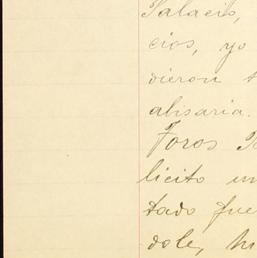 Palacio,
cios, yo
dieron
alisaria.
Foros
licito un
tado fue
dole,